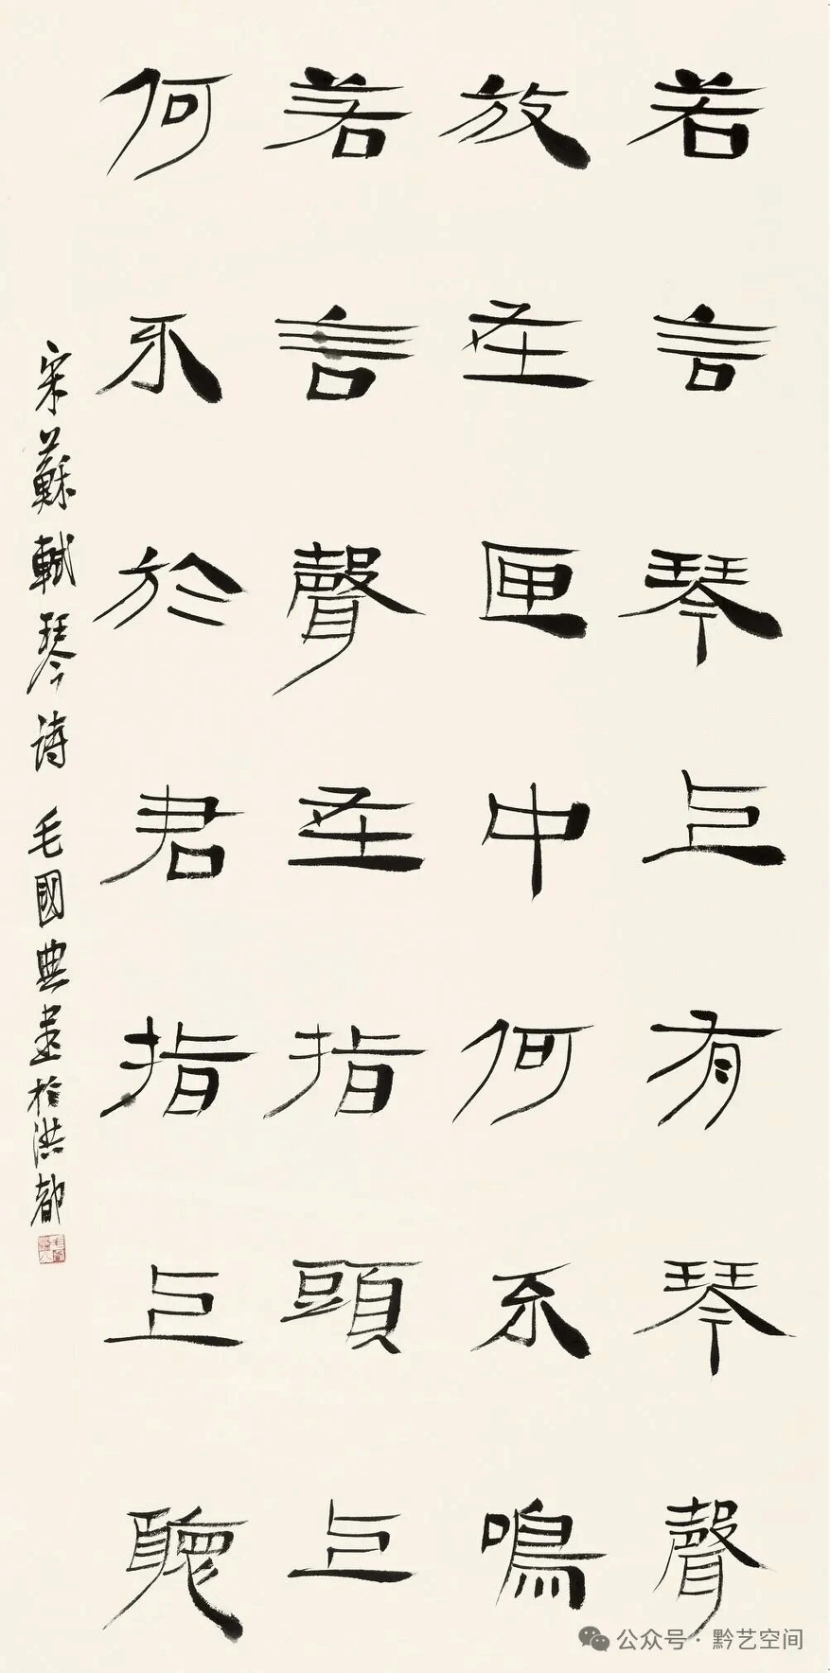 若言琴上有琴聲
放在匣中何不鳴
若言聲在指頭上
何不於君指上聽
宋蘇軾琴詩 毛國典書於洪都
公众号·黔艺空间